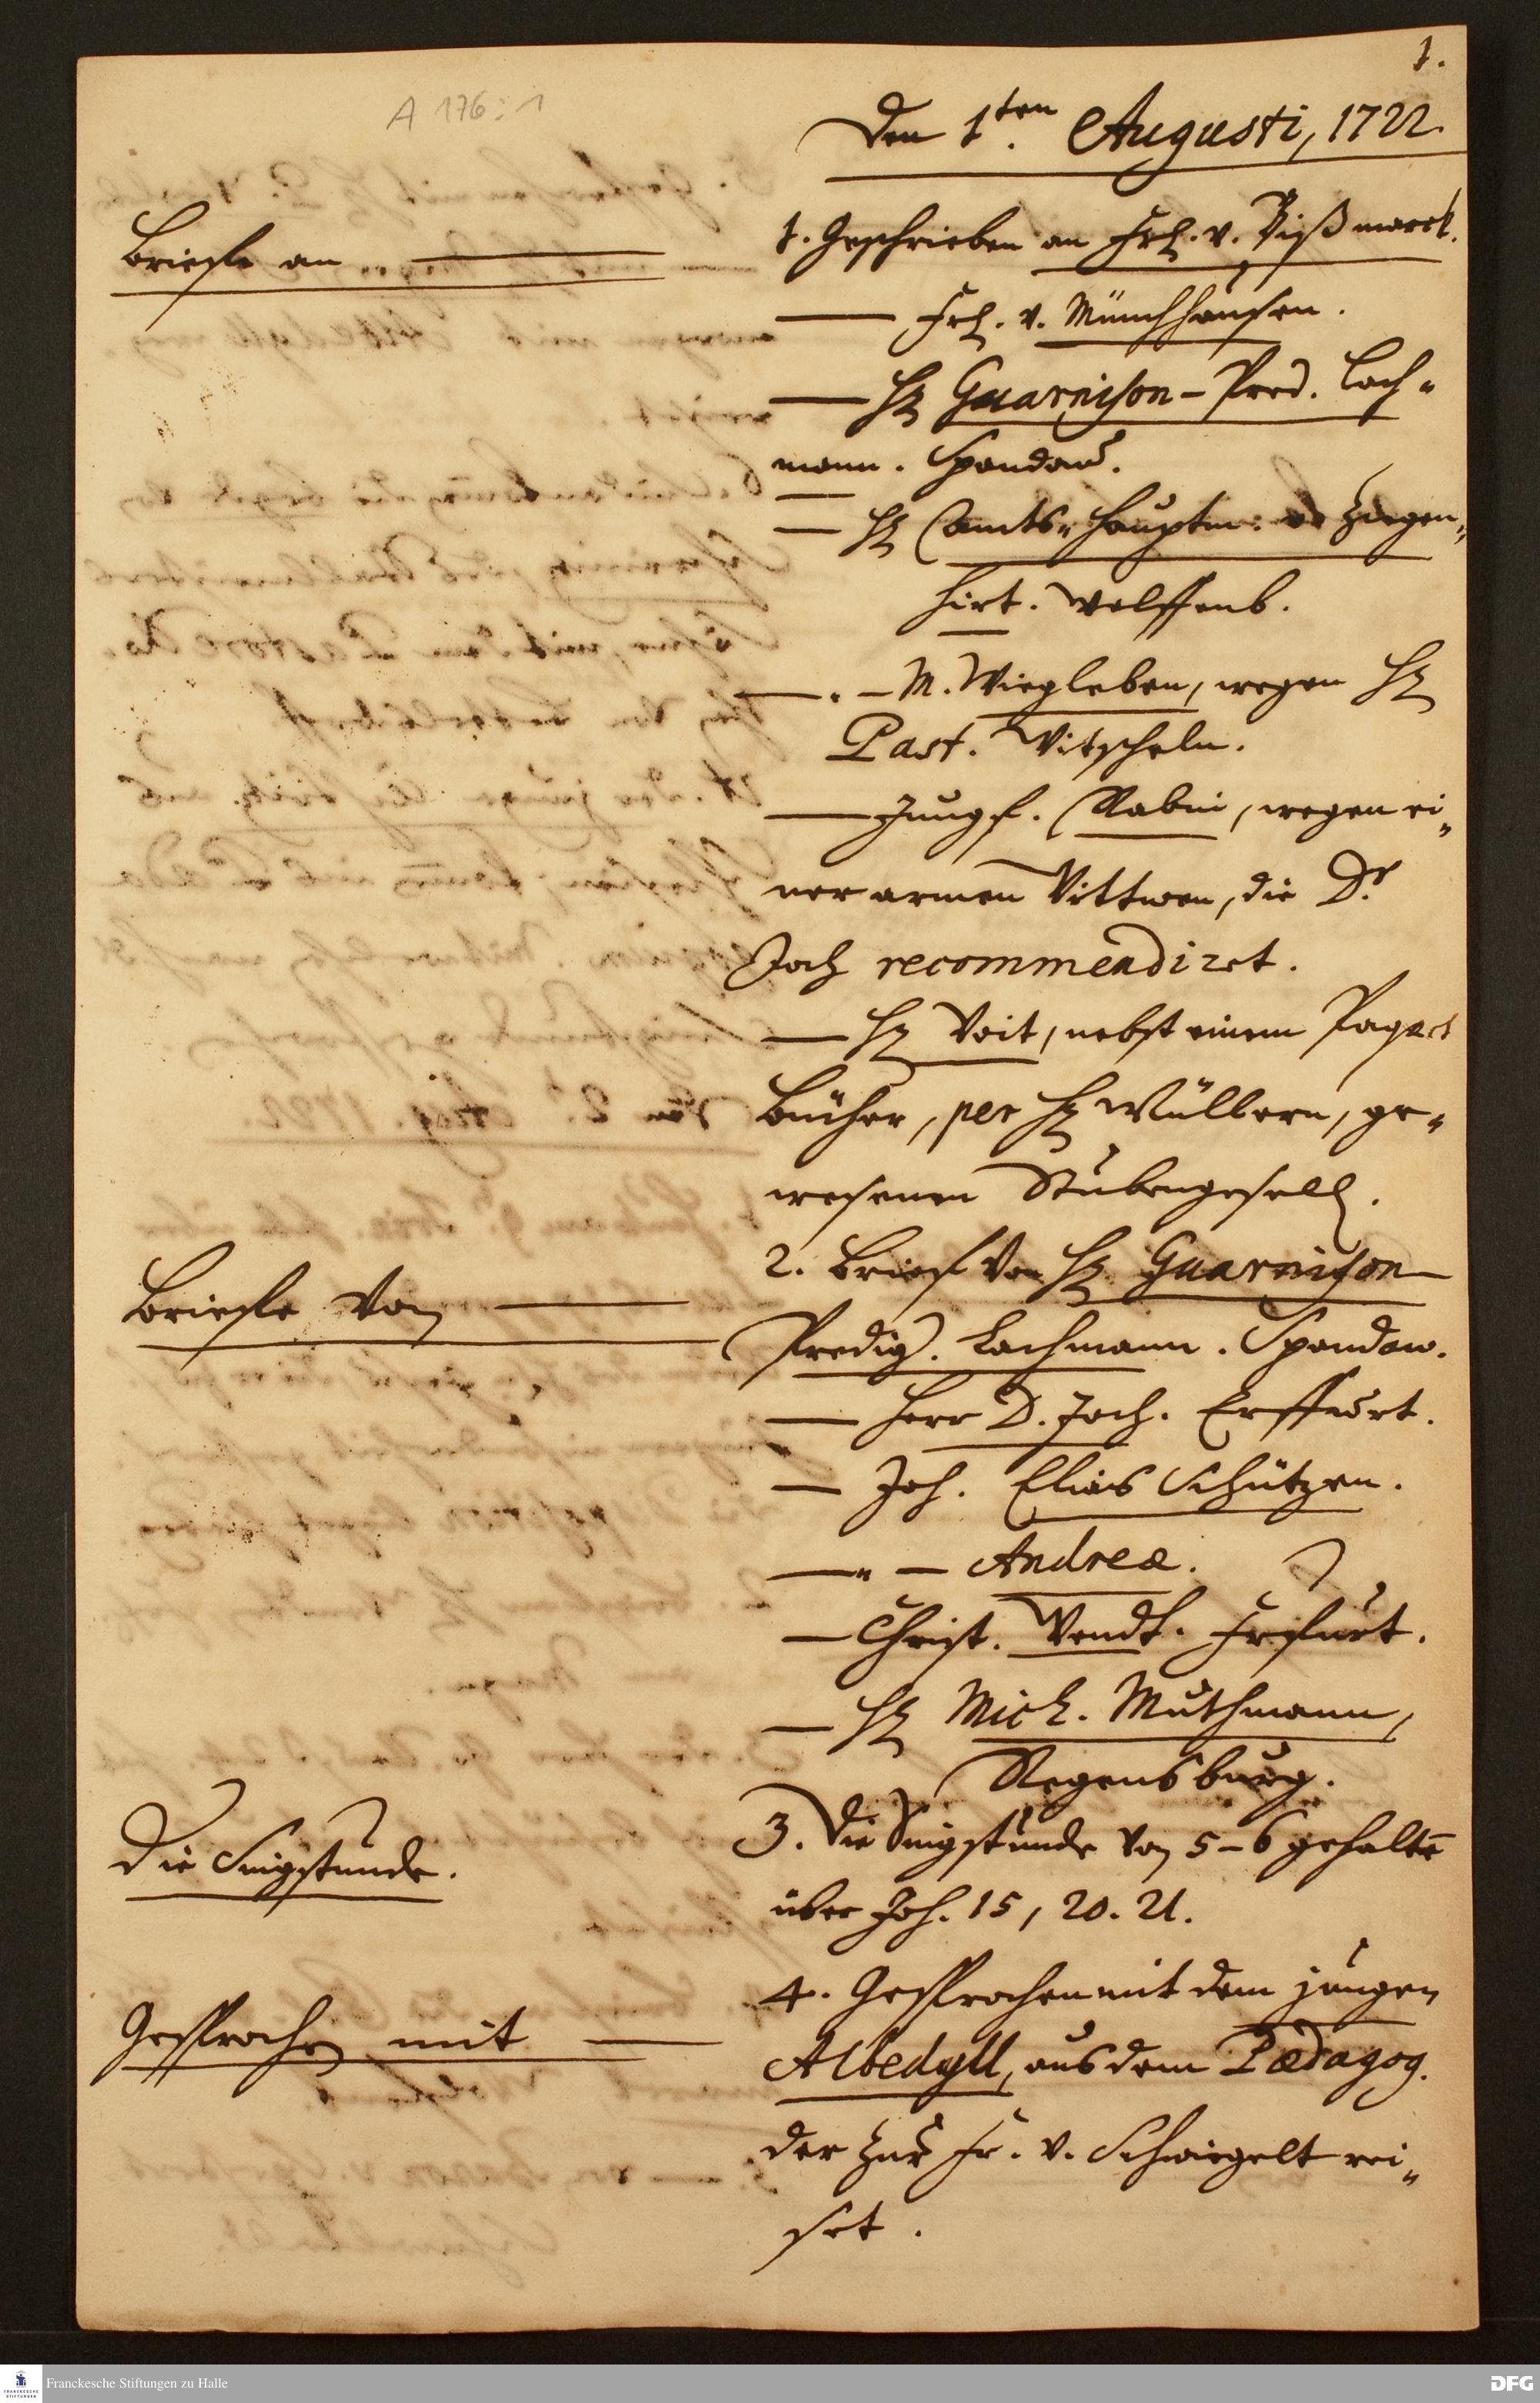 1.
A 176 : 1
Den 1ten Augusti, 1722.
Brieffe an
1. Geschrieben an Frl. v. Bißmarck.
— Frl. v. Münchhausen.
— H. Guarnison-Pred. Lach-
mann. Spandau.
— H. Amts-Hauptm: v. Ziegen-
hirt. Wolffenb.
— M. Wiegleben, wegen H.
Past. Witscheln.
— Jungf. Rabin, wegen ei-
ner armen Wittwen, die Dr.
Joch recommendiret.
— H. Voit, nebst einem Paquet
Bücher, per H. Müllern, ge-
wesenen Stubengesell.
Brieffe von
2. Brief von H. Guarnison
Predig. Lachmann. Spandow.
— Herr D. Joch. Erffurt.
— Joh. Elias Schützen.
— Andreæ.
— Christ. Wendt. Erfurt.
— H. Mich. Muthmann,
Regensburg.
Die Singstunde.
3. Die Singstunde von 5-6 gehalten
über Joh. 15, 20. 21.
Gesprochen mit
4. Gesprochen mit dem jungen
Albedyll, aus dem Pædagog.
der zur Fr. v. Schwiegelt rei-
set.
Franckesche Stiftungen zu Halle
DFG